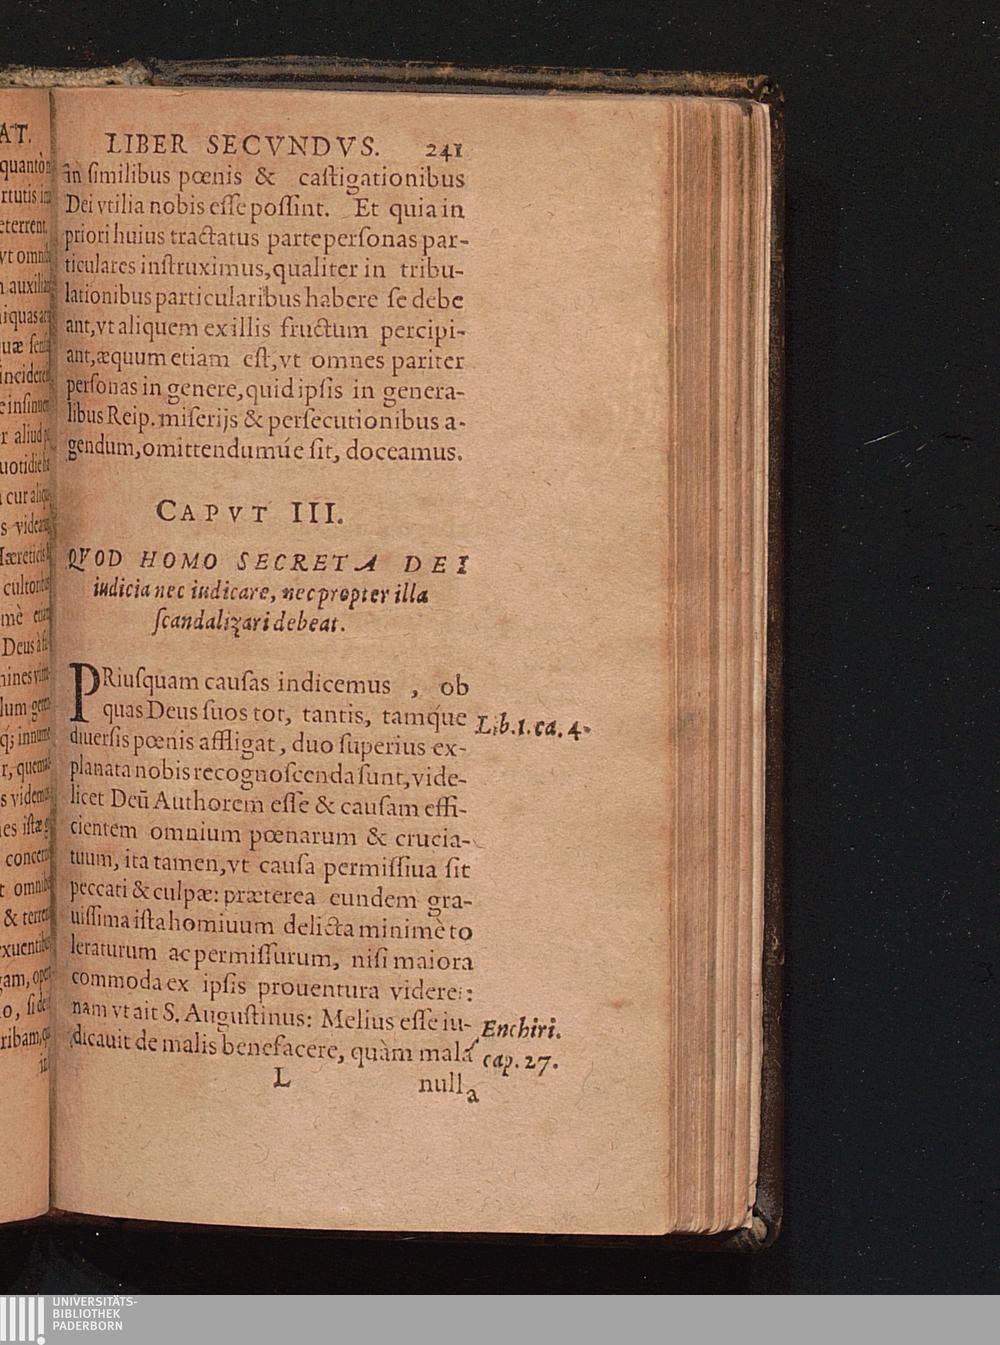 LIBER SECVNDVS. 241
in ſimilibus pœnis & caſtigationibus
Dei vtilia nobis eſſe poſſint. Et quia in
priori huius tractatus parte perſonas par-
ticulares inſtruximus, qualiter in tribu-
lationibus particularibus habere ſe debe
ant, vt aliquem ex illis fructum percipi-
ant, æquum etiam eſt, vt omnes pariter
perſonas in genere, quid ipſis in genera-
libus Reip. miſerijs & perſecutionibus a-
gendum, omittendumúe ſit, doceamus.
CAPVT III.
QVOD HOMO SECRETA DEI
iudicia nec iudicare, nec propter illa
ſcandalizari debeat.
PRiuſquam cauſas indicemus , ob
quas Deus ſuos tot, tantis, tamq́ue
diuerſis pœnis affligat, duo ſuperius ex-
planata nobis recognoſcenda ſunt, vide-
licet Deū Authorem eſſe & cauſam effi-
cientem omnium pœnarum & crucia-
tuum, ita tamen, vt cauſa permiſſiua ſit
peccati & culpæ: præterea eundem gra-
uiſſima iſta homiuum delicta minimè to
leraturum ac permiſſurum, niſi maiora
commoda ex ipſis prouentura videret:
nam vt ait S. Auguſtinus: Melius eſſe iu-
dicauit de malis benefacere, quàm mala
L nulla
Lib. 1. ca. 4.
Enchiri.
cap. 27.
AT.
quantò
vt omni
incidere
uotidie
Deus à
& terre
UNIVERSITÄTS-
BIBLIOTHEK
PADERBORN